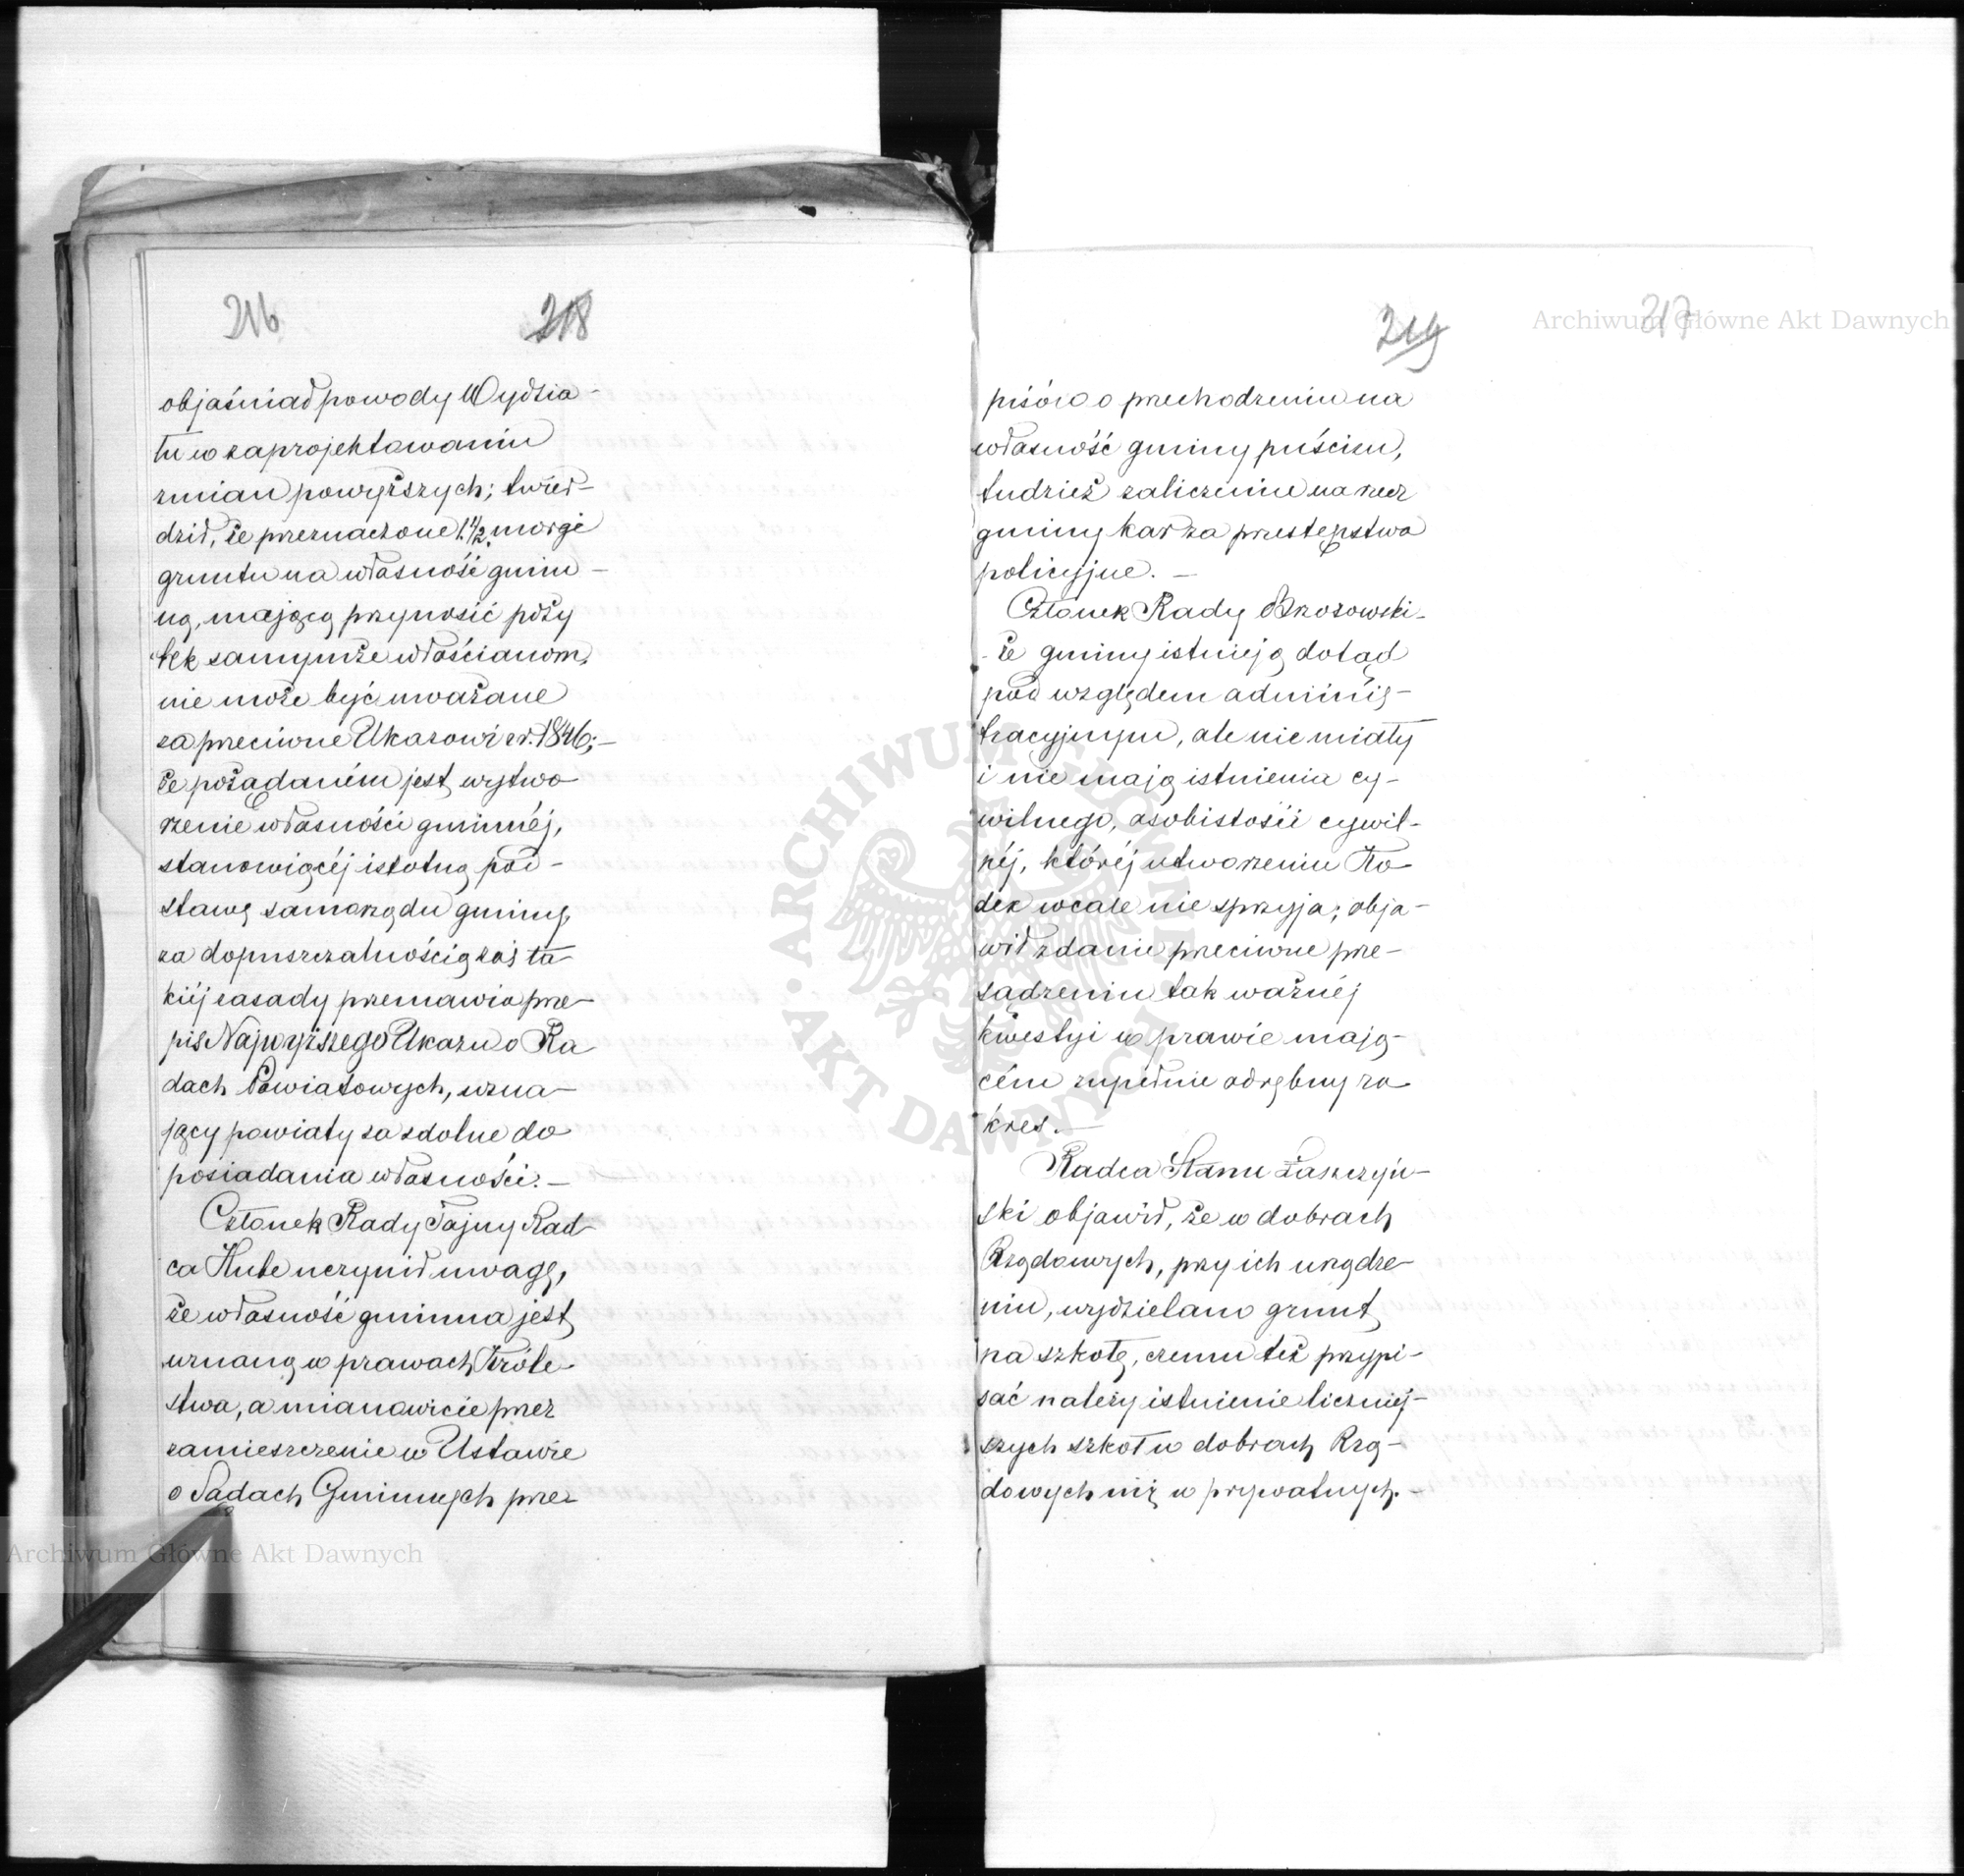 216 218
objaśniał powody Wydzia-
łu w zaprojektowaniu
zmian powyższych; twier-
dził, że przeznaczone 1 1/2 morgi
gruntu na własność gmin-
ną, mającą przynosić poży
tek samymże włościanom,
nie może być uważane
za przeciwne Ukazowi z r. 1846;-
że pożądaném jest wytwo
rzenie własności gminnéj,
stanowiącéj istotną pod-
stawę samorządu gminy,
za dopuszczalnością zaś ta
kiéj zasady przemawia prze-
pis Najwyższego Ukazu o Ra
dach Powiatowych, uzna-
jący powiaty za zdolne do
posiadania własności.-
Członek Rady Tajny Rad-
ca Hube uczynił uwagę,
że własność gminna jest
uznaną w prawach Króle-
stwa, a mianowicie przez
zamieszczenie w Ustawie
o Sądach Gminnych prze-
219 217
pisów o przechodzeniu na
własność gminy puścizn,
tudzież zaliczenie na rzecz
gminy kar za przestępstwa
policyjne. -
Członek Rady Brzozowski-
- że gminy istnieją dotąd
pod względem adminis-
tracyjnym, ale nie miały
i nie mają istnienia cy-
wilnego, osobistości cywil-
néj, któréj utworzeniu Ko-
dex wcale nie sprzyja; obja-
wił zdanie przeciwne prze-
sądzeniu tak ważnéj
kwestyi w prawie mają-
cém zupełnie odrębny za
kres.-
Radca Stanu Łaszczyń-
ski objawił, że w dobrach
Rządowych, przy ich urządze-
niu, wydzielano grunt
na szkołę, czemu też przypi-
sać należy istnienie liczniej-
szych szkół w dobrach Rzą-
dowych niż w prywatnych.-
Archiwum Główne Akt Dawnych
Archiwum Główne Akt Dawnych
ARCHIWUM GŁÓWNE • AKT DAWNYCH